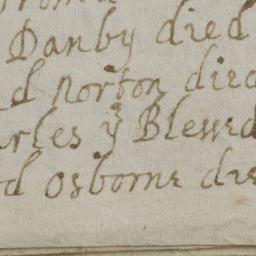 Danby died
d Norton died
arles yᵉ Blessed
d Osborne die